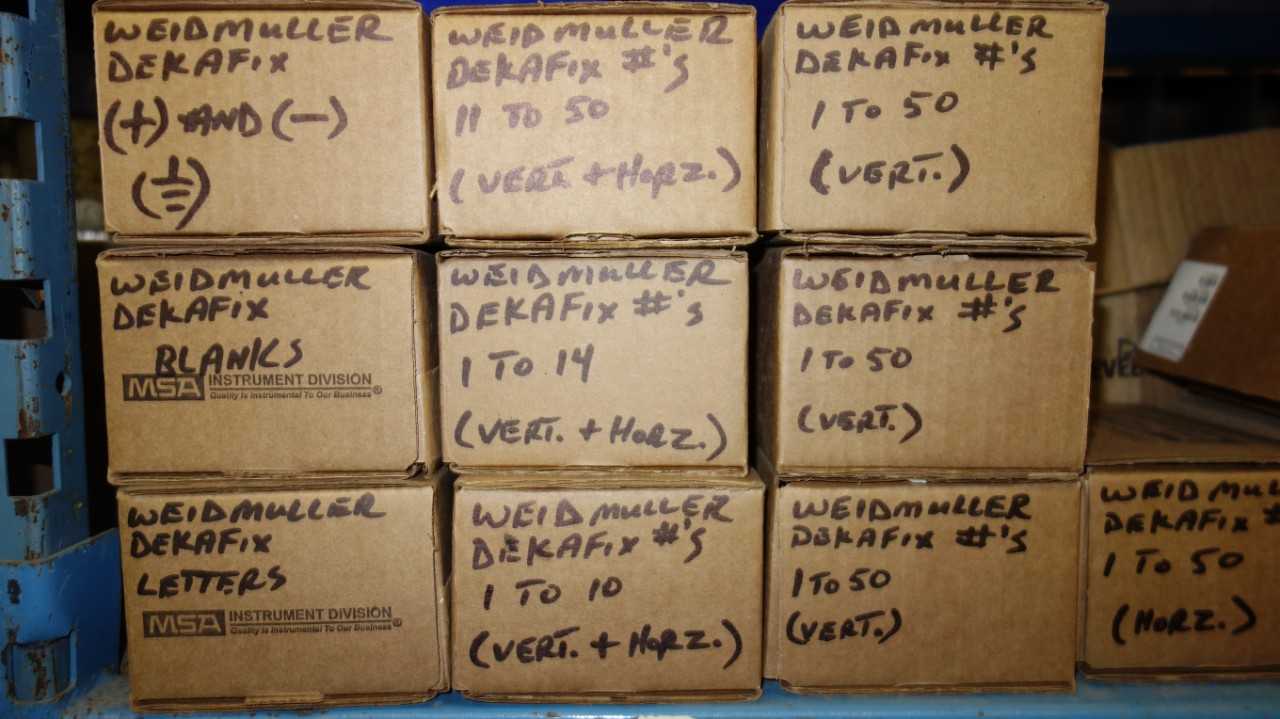 WEIDMULLER
DEKAFIX
(+) AND (-)
(⏚)
WEIDMULLER
DEKAFIX #'s
11 TO 50
(VERT. + HORZ.)
WEIDMULLER
DEKAFIX #'s
1 TO 50
(VERT.)
WEIDMULLER
DEKAFIX
BLANKS
MSA INSTRUMENT DIVISION
Quality Is Instrumental To Our Business®
WEIDMULLER
DEKAFIX #'s
1 TO 14
(VERT. + HORZ.)
WEIDMULLER
DEKAFIX #'s
1 TO 50
(VERT.)
WEIDMULLER
DEKAFIX
LETTERS
MSA INSTRUMENT DIVISION
Quality Is Instrumental To Our Business®
WEIDMULLER
DEKAFIX #'s
1 TO 10
(VERT. + HORZ.)
WEIDMULLER
DEKAFIX #'s
1 TO 50
(VERT.)
WEIDMUL
DEKAFIX #
1 TO 50
(HORZ.)